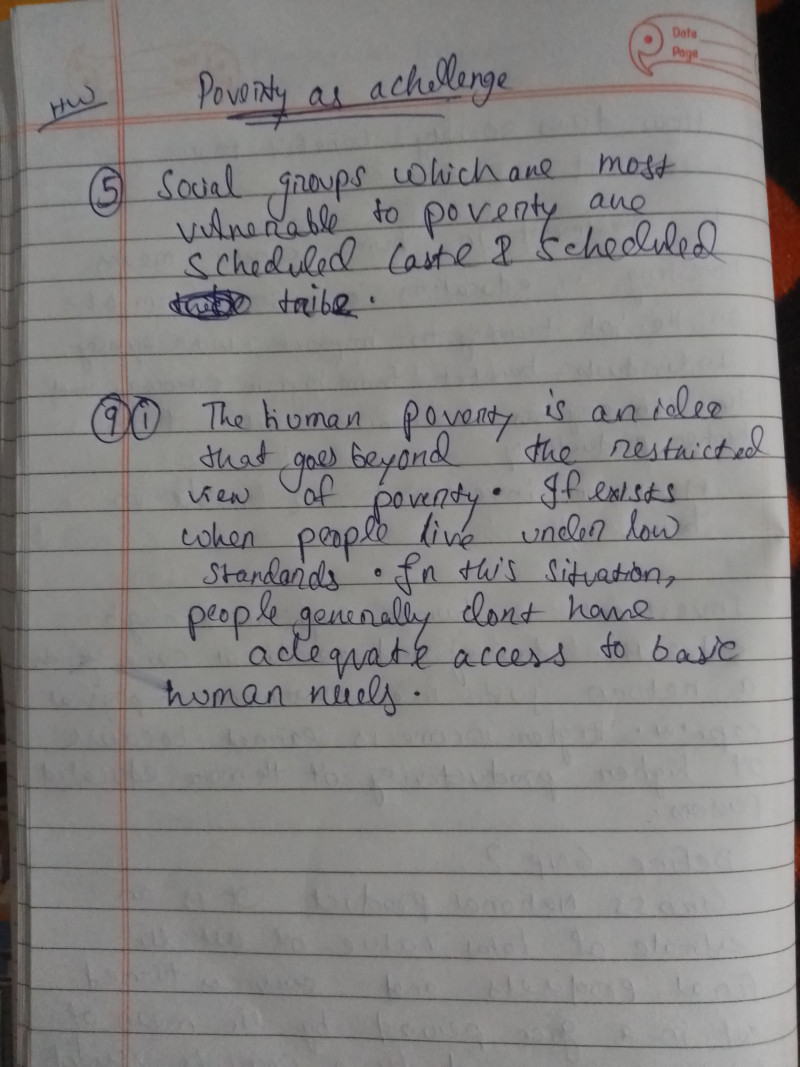 Date
Page
HW
Poverty as a challenge
5 Social groups which are most
vulnerable to poverty are
scheduled caste & scheduled
tribe.
9 i The human poverty is an idea
that goes beyond the restricted
view of poverty. If exists
when people live under low
standards. In this situation,
people generally dont have
adequate access to basic
human needs.